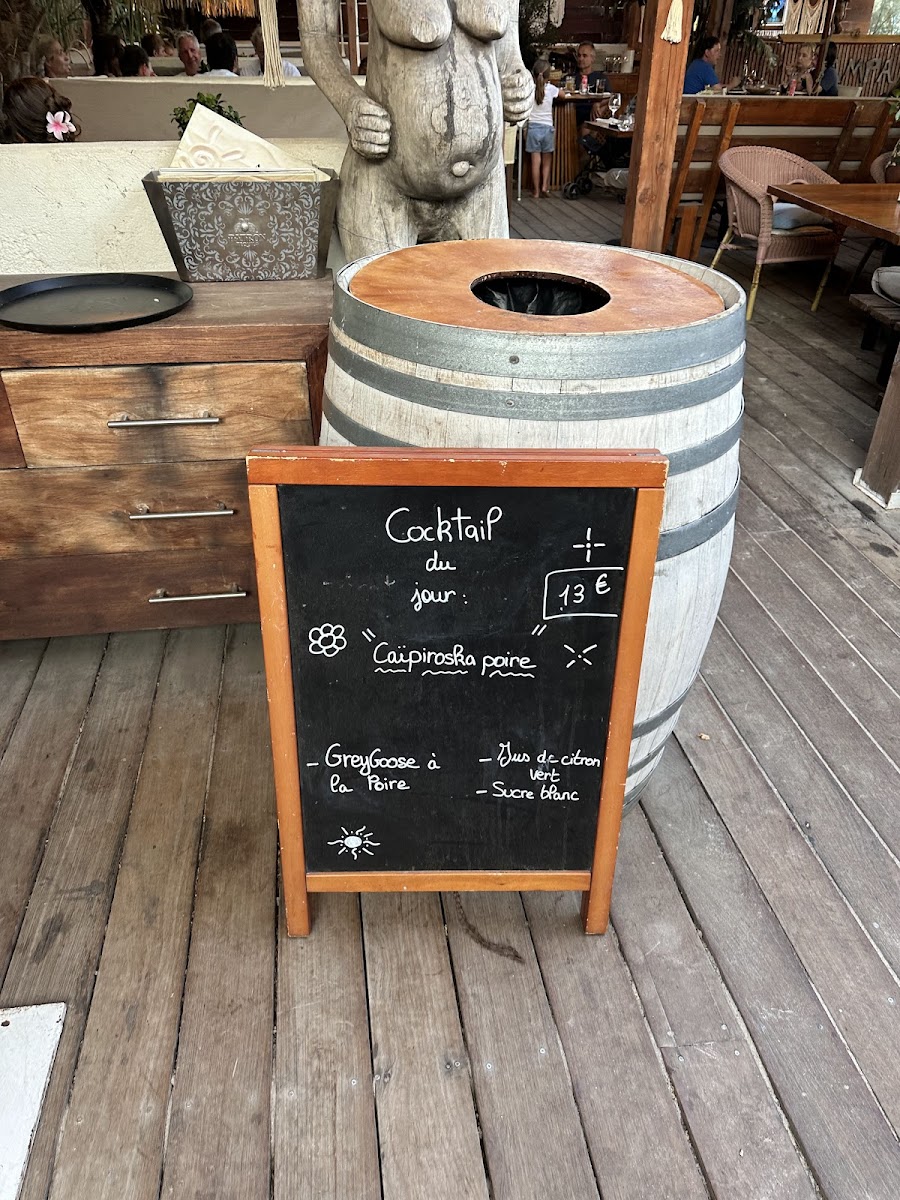 Cocktail
du
jour :
13 €
" Caïpiroska poire "
- GreyGoose à
la Poire
- Jus de citron
vert
- Sucre blanc